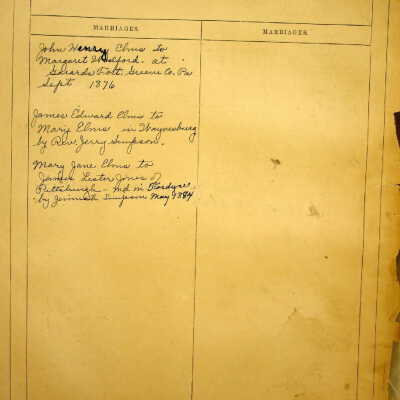 MARRIAGES.
MARRIAGES.
John Henry Elms to
Margaret Halford. at
Gerards Fort, Greene Co. Pa
Sept 1876
James Edward Elms to
Mary Elms in Waynesburg
by Rev. Jerry Simpson.
Mary Jane Elms to
James Lester Jones of
Pittsburgh - md in
by Jeremiah Simpson May 1884